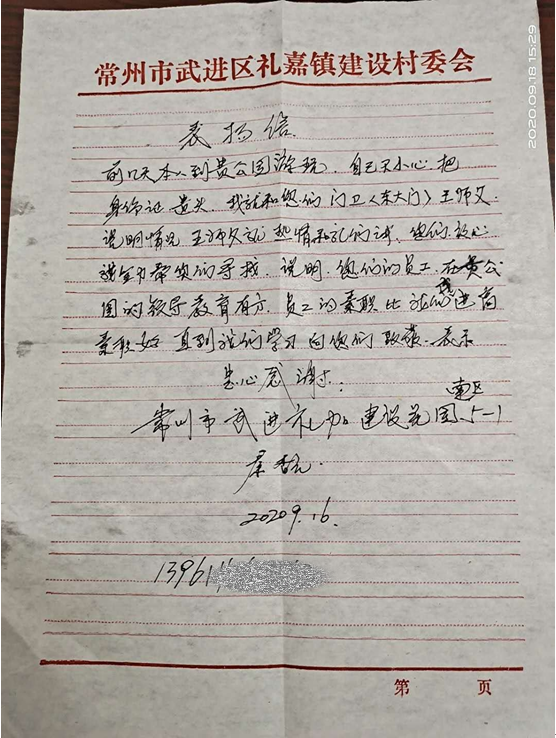 2020.09.18 15:29
常州市武进区礼嘉镇建设村委会
表扬信
前几天本人到贵公园游玩.自己不小心把
身份证丢失.我就和您们门卫《东大门》王师文
说明情况王师文就热情和我们讲.您们放心
我全力帮您们寻找.说明.您们的员工.在贵公
园的领导教育有方.员工的素职比我们是高
素职好直到我们学习向您们致敬.表示
忠心感谢!
南区
常州市武进礼加建设花园.5-1
2020 9.16.
13961
第 页